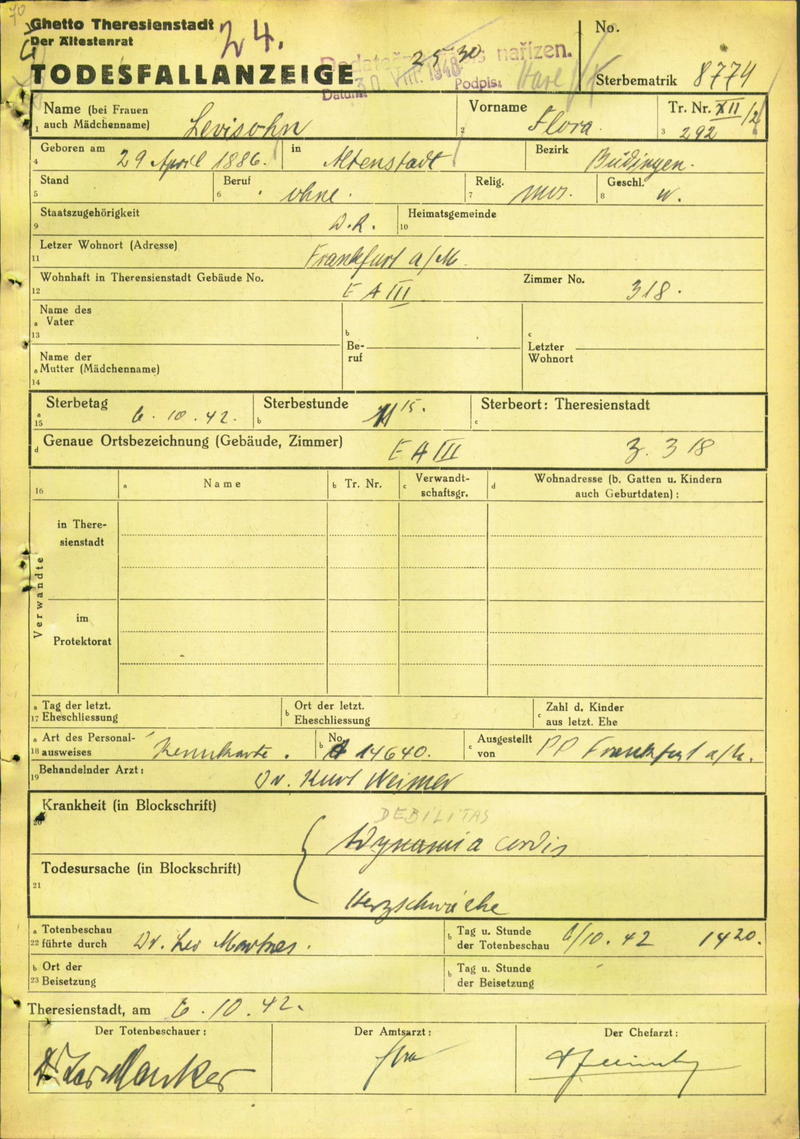 70
Ghetto Theresienstadt
Der Ältestenrat
24.
25 30 nařízen.
Datum Podpis:
No.
TODESFALLANZEIGE
Sterbematrik 8774
Name (bei Frauen auch Mädchenname) Levisohn
1
Vorname Flora.
2
Tr. Nr. XII/2
3 292
Geboren am 29 April 1886. in Altenstadt Bezirk Büdingen.
4
Stand Beruf ohne. Relig. mos. Geschl. w.
5 6 7 8
Staatszugehörigkeit D.R. Heimatsgemeinde
9 10
Letzer Wohnort (Adresse) Frankfurt a/M.
11
Wohnhaft in Therensienstadt Gebäude No. E A III Zimmer No. 318.
12
Name des
a Vater
13
b
Be-
ruf
c
Letzter
Wohnort
Name der
a Mutter (Mädchenname)
14
Sterbetag 6.10.42. Sterbestunde 15. Sterbeort: Theresienstadt
a 15 b c
d Genaue Ortsbezeichnung (Gebäude, Zimmer) E A III Z. 318
16 a Name b Tr. Nr. c Verwandt-
schaftsgr. d Wohnadresse (b. Gatten u. Kindern
auch Geburtdaten) :
Verwandte
in There-
sienstadt
im
Protektorat
a Tag der letzt.
17 Eheschliessung
b Ort der letzt.
Eheschliessung
c Zahl d. Kinder
aus letzt. Ehe
a Art des Personal-
18 ausweises Kennkarte. b No. 14640. c Ausgestellt
von PP Frankfurt a/M.
19 Behandelnder Arzt: Dr. Kurt Weimer
Krankheit (in Blockschrift)
20
DEBILITAS
Adynamia cordis
Todesursache (in Blockschrift)
21
Herzschwäche
a Totenbeschau
22 führte durch Dr. Leo
b Tag u. Stunde
der Totenbeschau 6/10.42 1420.
b Ort der
23 Beisetzung
b Tag u. Stunde
der Beisetzung
Theresienstadt, am 6.10.42.
Der Totenbeschauer: Der Amtsarzt: Der Chefarzt: